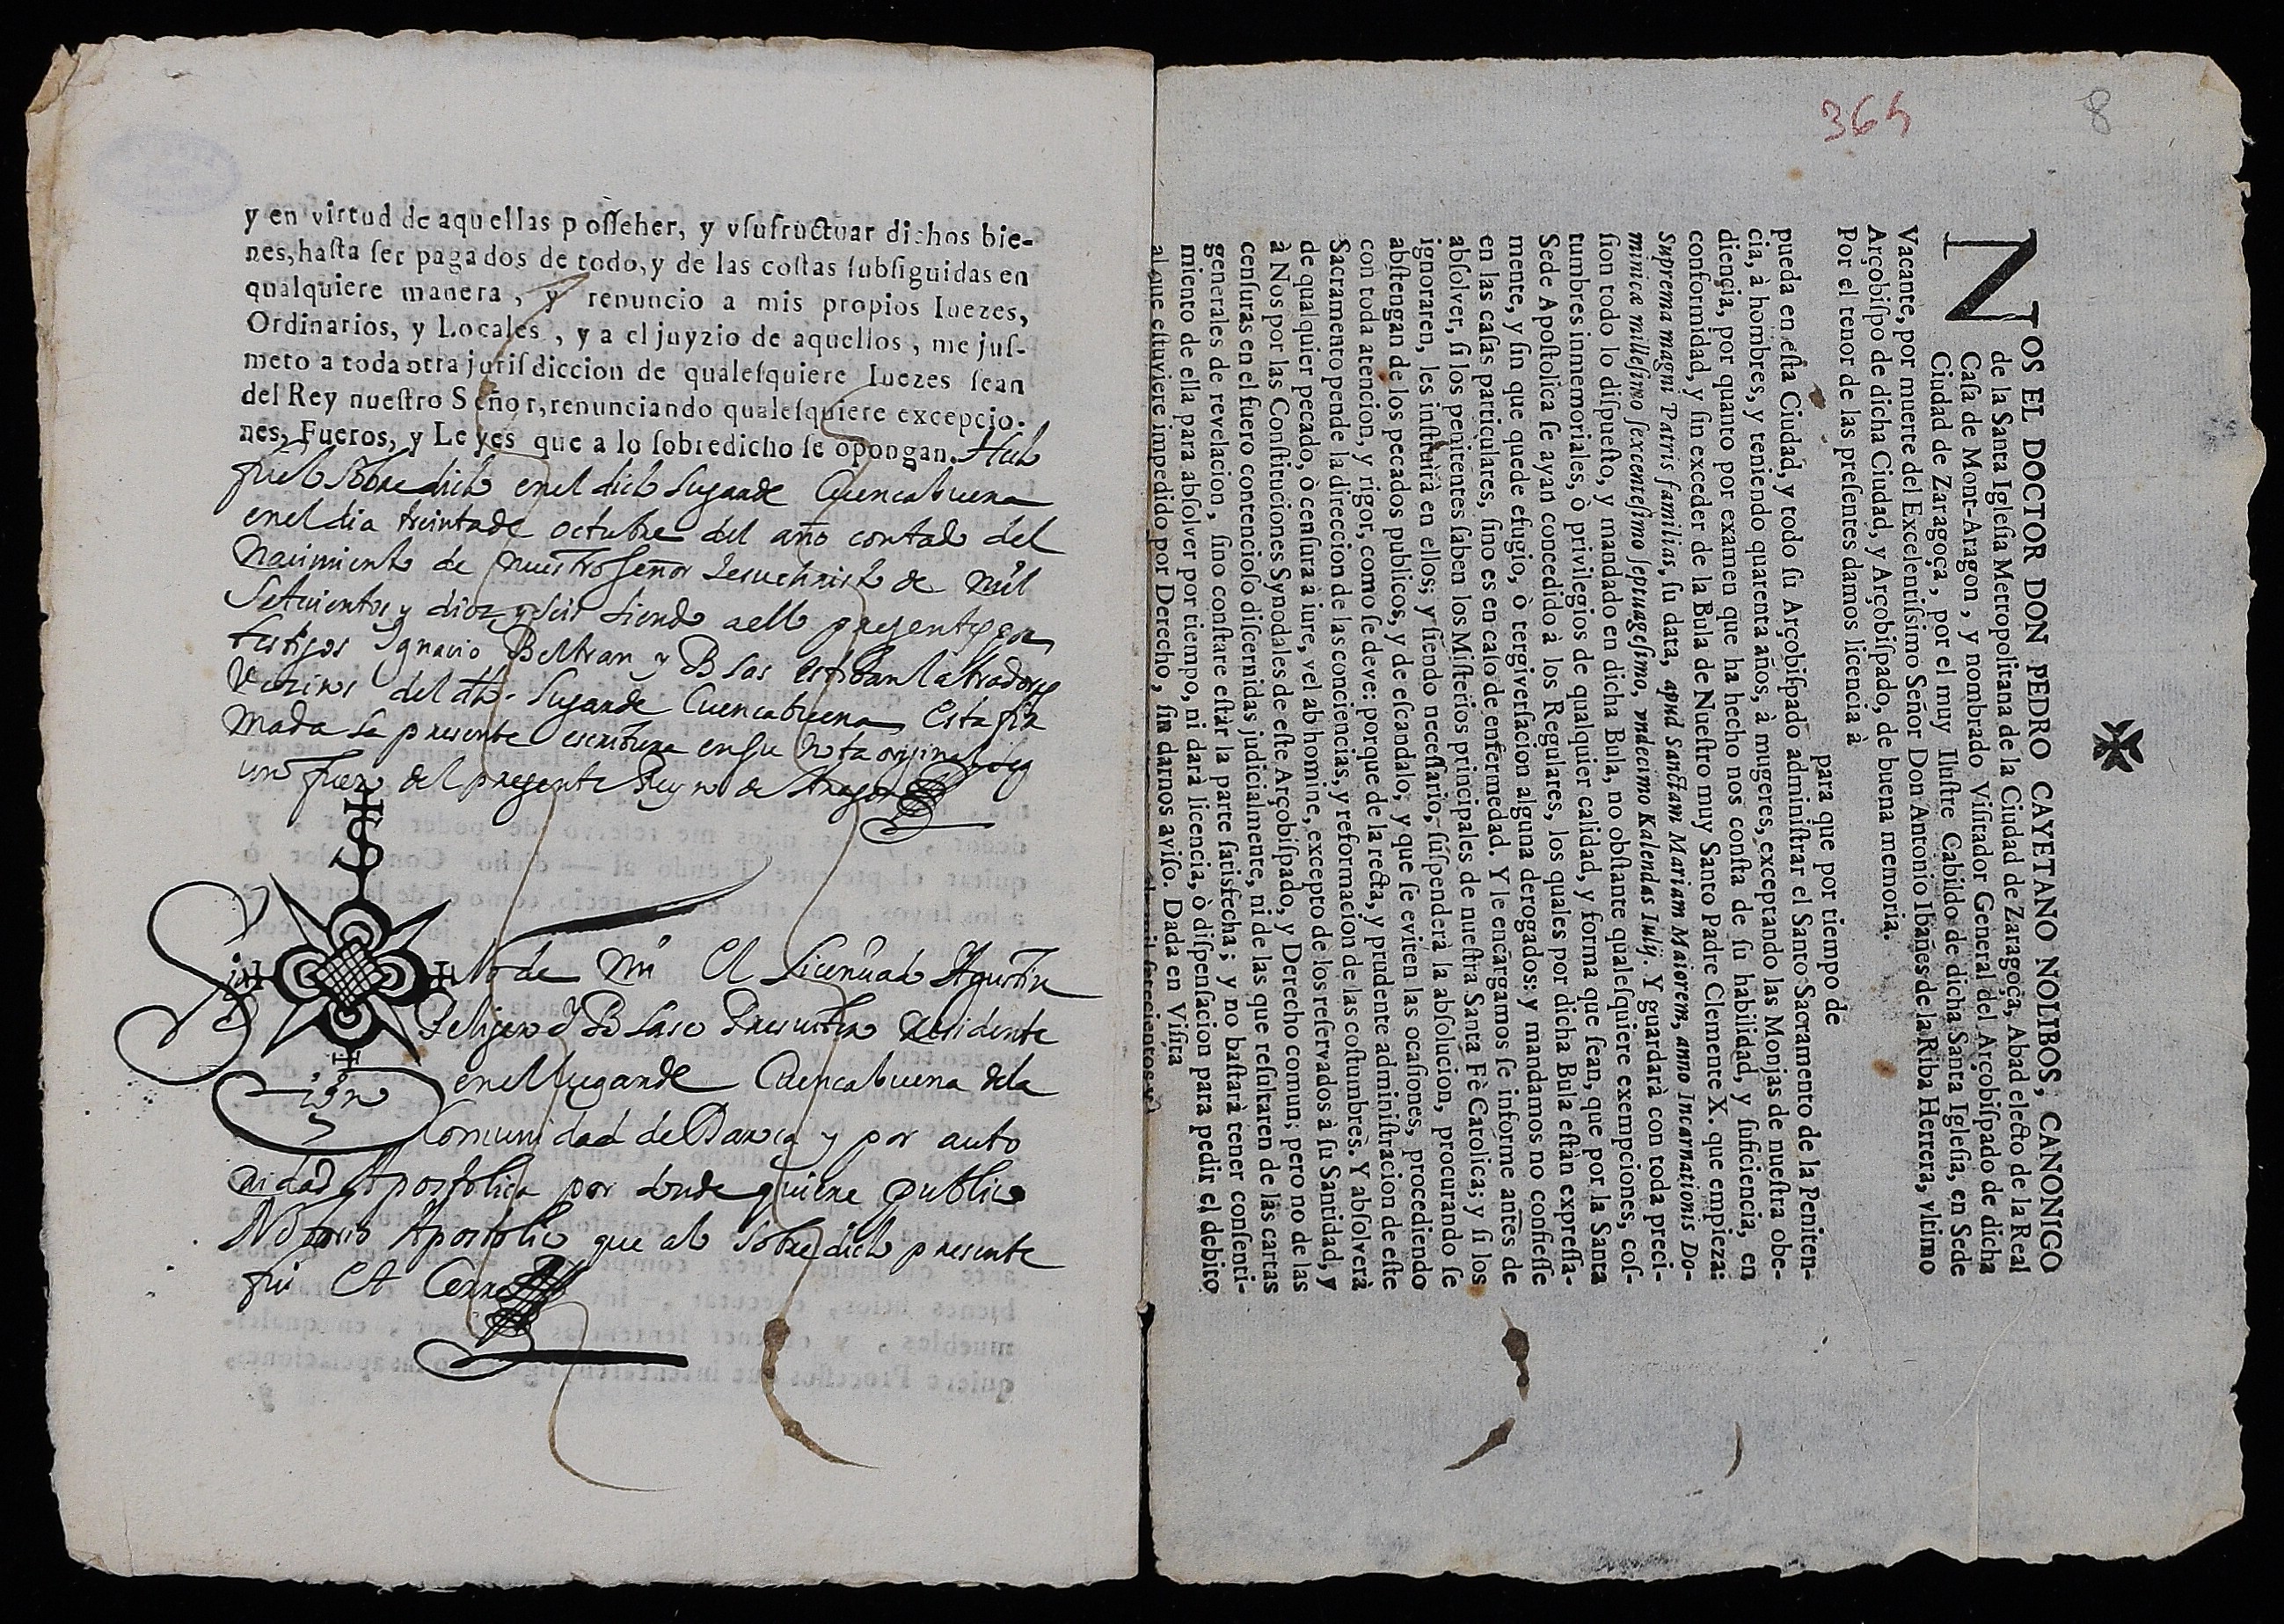 y en virtud de aquellas poſſeher, y vſufructuar dichos bie-
nes, haſta ſer pagados de todo, y de las coſtas ſubſiguidas en
qualquiere manera, y renuncio a mis propios Iuezes,
Ordinarios, y Locales, y a el juyzio de aquellos, me juſ-
meto a toda otra juriſdiccion de qualeſquiere Iuezes ſean
del Rey nueſtro Señor, renunciando qualeſquiere excepcio-
nes, Fueros, y Leyes que a lo ſobredicho ſe opongan. Hecho
fue lo Sobre dicho en el dicho Lugar de Cuencabuena
en el dia treinta de octubre del año contado del
Nacimiento de nuestro Señor Jesuchristo de Mil
Setecientos y diez y seis siendo a ello presentes por
testigos Ignacio Beltran y Blas esteban labradores
Vezinos del dho. Lugar de Cuencabuena Esta fir
mada la presente escritura en su nota original
fuero del presente Reyno de Aragon
Sig no de mi El Licenciado Agustin
Pelijero y Blasco Presvitero Residente
en el lugar de Cuencabuena dela
Comunidad de Daroca y por auto
ridad Apostolica por donde quiere publico
Notario Apostolico que a lo Sobre dicho presente
fui Et Cerre
365
8
NOS EL DOCTOR DON PEDRO CAYETANO NOLIBOS, CANONIGO
de la Santa Igleſia Metropolitana de la Ciudad de Zaragoça, Abad electo de la Real
Caſa de Mont-Aragon, y nombrado Viſitador General del Arçobiſpado de dicha
Ciudad de Zaragoça, por el muy Iluſtre Cabildo de dicha Santa Igleſia, en Sede
Vacante, por muerte del Excelentiſsimo Señor Don Antonio Ibañes de la Riba Herrera, vltimo
Arçobiſpo de dicha Ciudad, y Arçobiſpado, de buena memoria.
Por el tenor de las preſentes damos licencia à
para que por tiempo de
pueda en eſta Ciudad, y todo ſu Arçobiſpado adminiſtrar el Santo Sacramento de la Peniten-
cia, à hombres, y teniendo quarenta años, à mugeres, exceptando las Monjas de nueſtra obe-
diencia, por quanto por examen que ha hecho nos conſta de ſu habilidad, y ſuficiencia, en
conformidad, y ſin exceder de la Bula de Nueſtro muy Santo Padre Clemente X. que empieza:
Suprema magni Patris familias, ſu data, apud Sanctam Mariam Maiorem, anno Incarnationis Do-
minicæ milleſimo ſexcenteſimo ſeptuageſimo, vndecimo Kalendas Iulij. Y guardarà con toda preci-
ſion todo lo diſpueſto, y mandado en dicha Bula, no obſtante qualeſquiere exempciones, coſ-
tumbres inmemoriales, ò privilegios de qualquier calidad, y forma que ſean, que por la Santa
Sede Apoſtolica ſe ayan concedido à los Regulares, los quales por dicha Bula eſtàn expreſſa-
mente, y ſin que quede efugio, ò tergiverſacion alguna derogados: y mandamos no confieſſe
en las caſas particulares, ſino es en caſo de enfermedad. Y le encargamos ſe informe antes de
abſolver, ſi los penitentes ſaben los Miſterios principales de nueſtra Santa Fè Catolica; y ſi los
ignoraren, les inſtruirà en ellos; y ſiendo neceſſario, ſuſpenderà la abſolucion, procurando ſe
abſtengan de los pecados publicos, y de eſcandalo, y que ſe eviten las ocaſiones, procediendo
con toda atencion, y rigor, como ſe deve: porque de la recta, y prudente adminiſtracion de eſte
Sacramento pende la direccion de las conciencias, y reformacion de las coſtumbres. Y abſolverà
de qualquier pecado, ò cenſura à iure, vel ab homine, excepto de los reſervados à ſu Santidad, y
à Nos por las Conſtituciones Synodales de eſte Arçobiſpado, y Derecho comun; pero no de las
cenſuras en el fuero contencioſo diſcernidas judicialmente, ni de las que reſultaren de las cartas
generales de revelacion, ſino conſtare eſtàr la parte ſatisfecha; y no baſtarà tener conſenti-
miento de ella para abſolver por tiempo, ni darà licencia, ò diſpenſacion para pedir el debito
al que eſtuviere impedido por Derecho, ſin darnos aviſo. Dada en Viſita